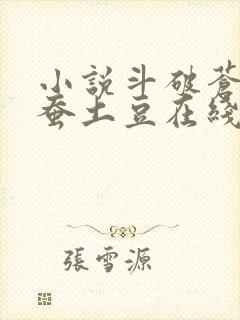 小說斗破蒼
蚕土豆在綫
張雪源